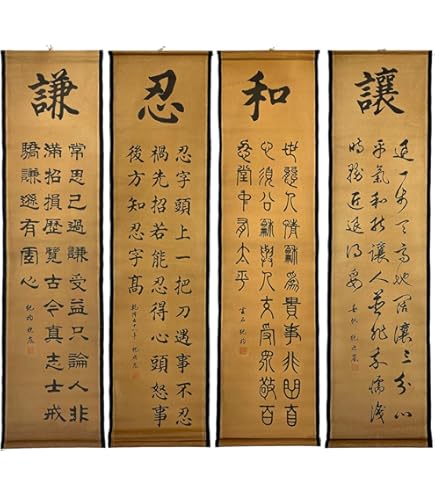 讓
退一步天高地闊讓三分心
平氣和能讓人並非我懦淺
時務近退得妥
和
世間人情龢為貴事非曲直
心須公龢與人交受眾敬百
忍堂中有太平
忍
忍字頭上一把刀遇事不忍
禍先招若能忍得心頭怒事
後方知忍字高
紀曉嵐
謙
常思己過謙受益只論人非
滿招損歷覽古今真志士戒
驕謙遜有心
紀昀曉嵐